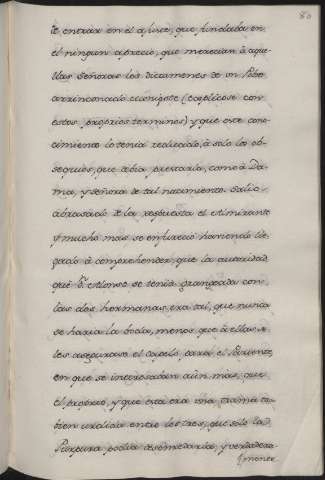 80
de entrar en el ajuste, que fundaba en
el ningun aprecio, que merecian à aque
llas Señoras los dictamenes de un Pobre
arrinconado clerigote (explicose con
estos proprios terminos) y que este cono-
cimiento lo tenia reducido, à solo los ob-
sequios, que debia prestarla, como à Da-
ma, y señora de tal nacimiento. Salio
abrasado de la respuesta el Almirante
y mucho mas se enfurecio haviendo lle-
gado à comprehender, que la autoridad
que Dn. Alonso se tenia grangeada con
las dos hermanas, era tal, que nunca
se haria la boda, menos que à ellas
les asegurase el capelo, para el Pariente,
en que se interesaban aùn mas, que
el proprio, y que esta era una trama tan
bien urdida entre los tres, que solo la
Purpura podia desenredarla, y verdadera-
mente